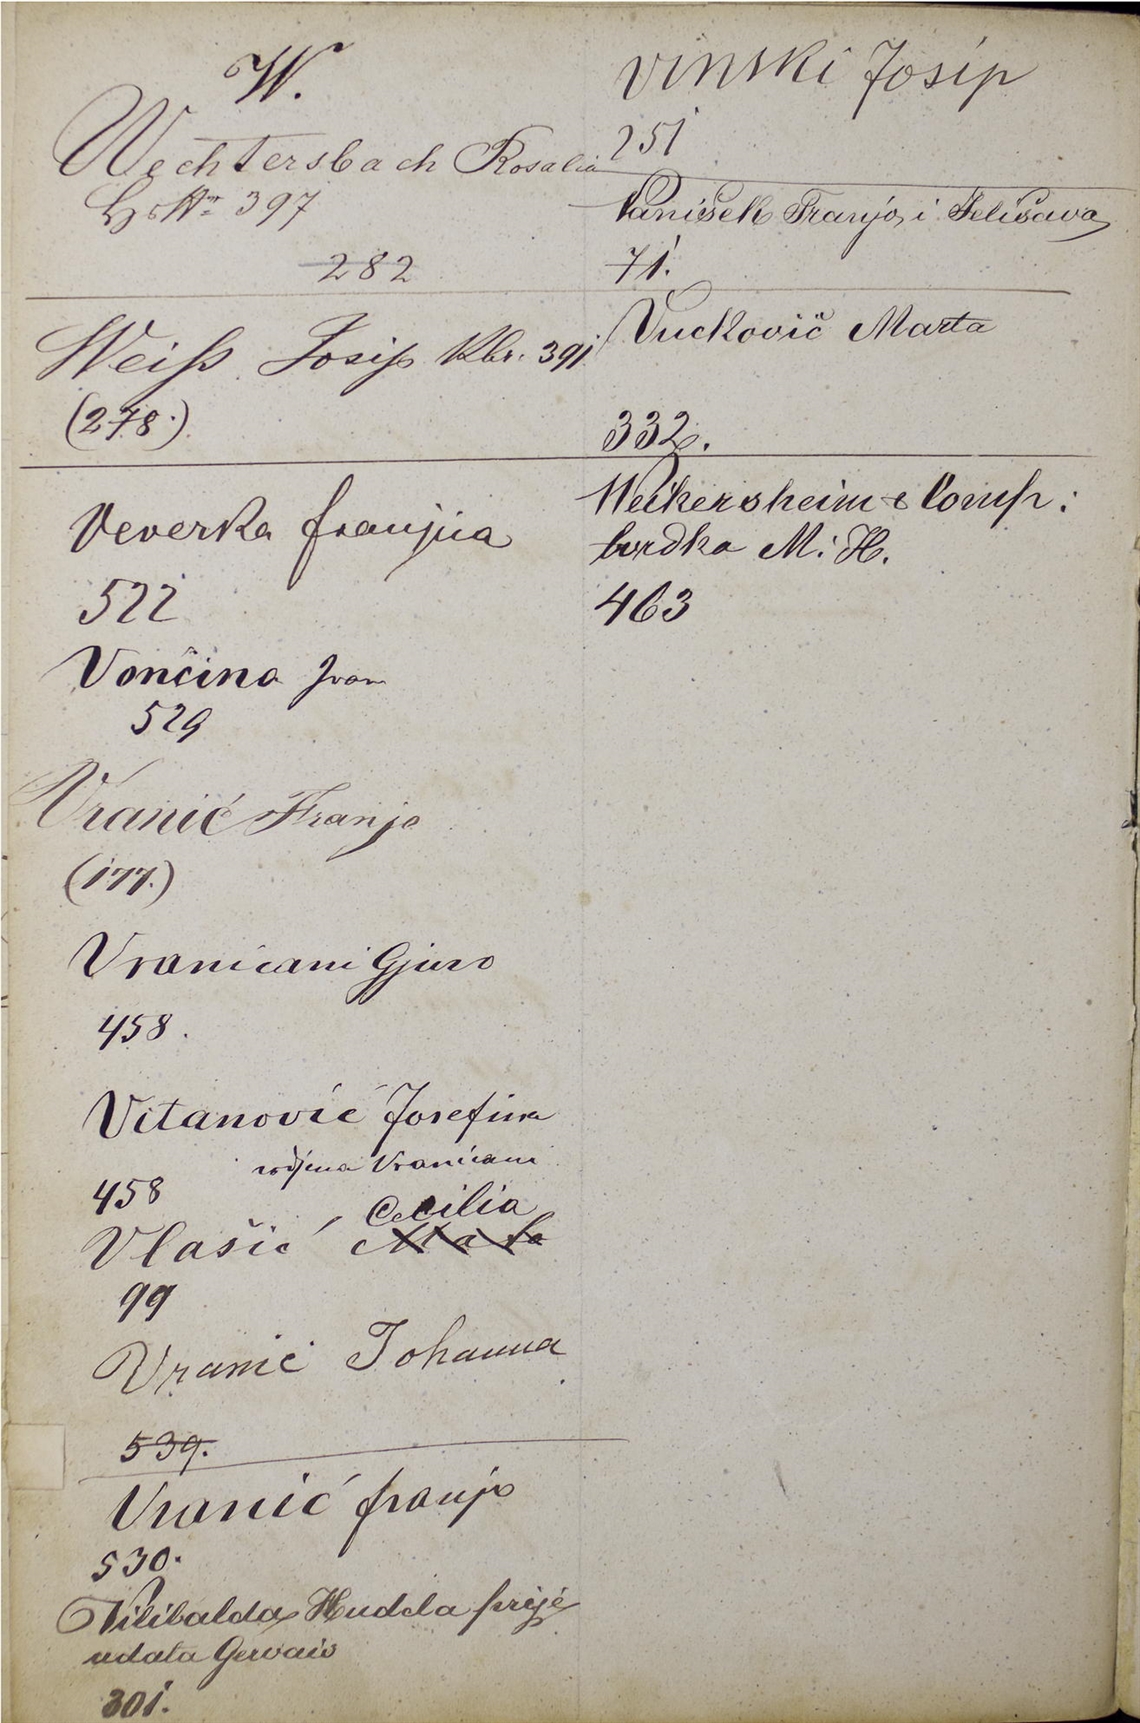 W.
Wechtersbach Rosalia
Hs Nr 397
282
Weiß Josip Kbr. 391
(278.)
Veverka franjica
522
Vončina Ivan
529
Vranić Franjo
(177.)
Vranicani Gjuro
458.
Vitanović Josefina
rodjena Vranicani
458
Cecilia
Vlašić Mata
99
Vranić Johanna
539.
Vranić franjo
530.
Vilibalda Hudela prije
udata Gervais
301.
Vinski Josip
251
Vanišek Franjo i Jelisava
71.
Vucković Marta
332.
Weikersheim & Comp:
tvrdka M: H.
463